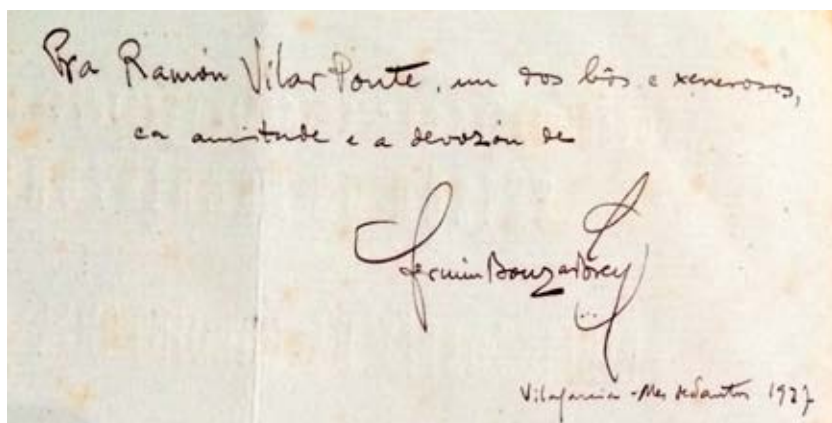 Pra Ramón Vilar Ponte, un dos bôs e xenerosos,
ca amitude e a devozón de
Fermín Bouza Brey
Vilagarcía - Mes de Santos 1927